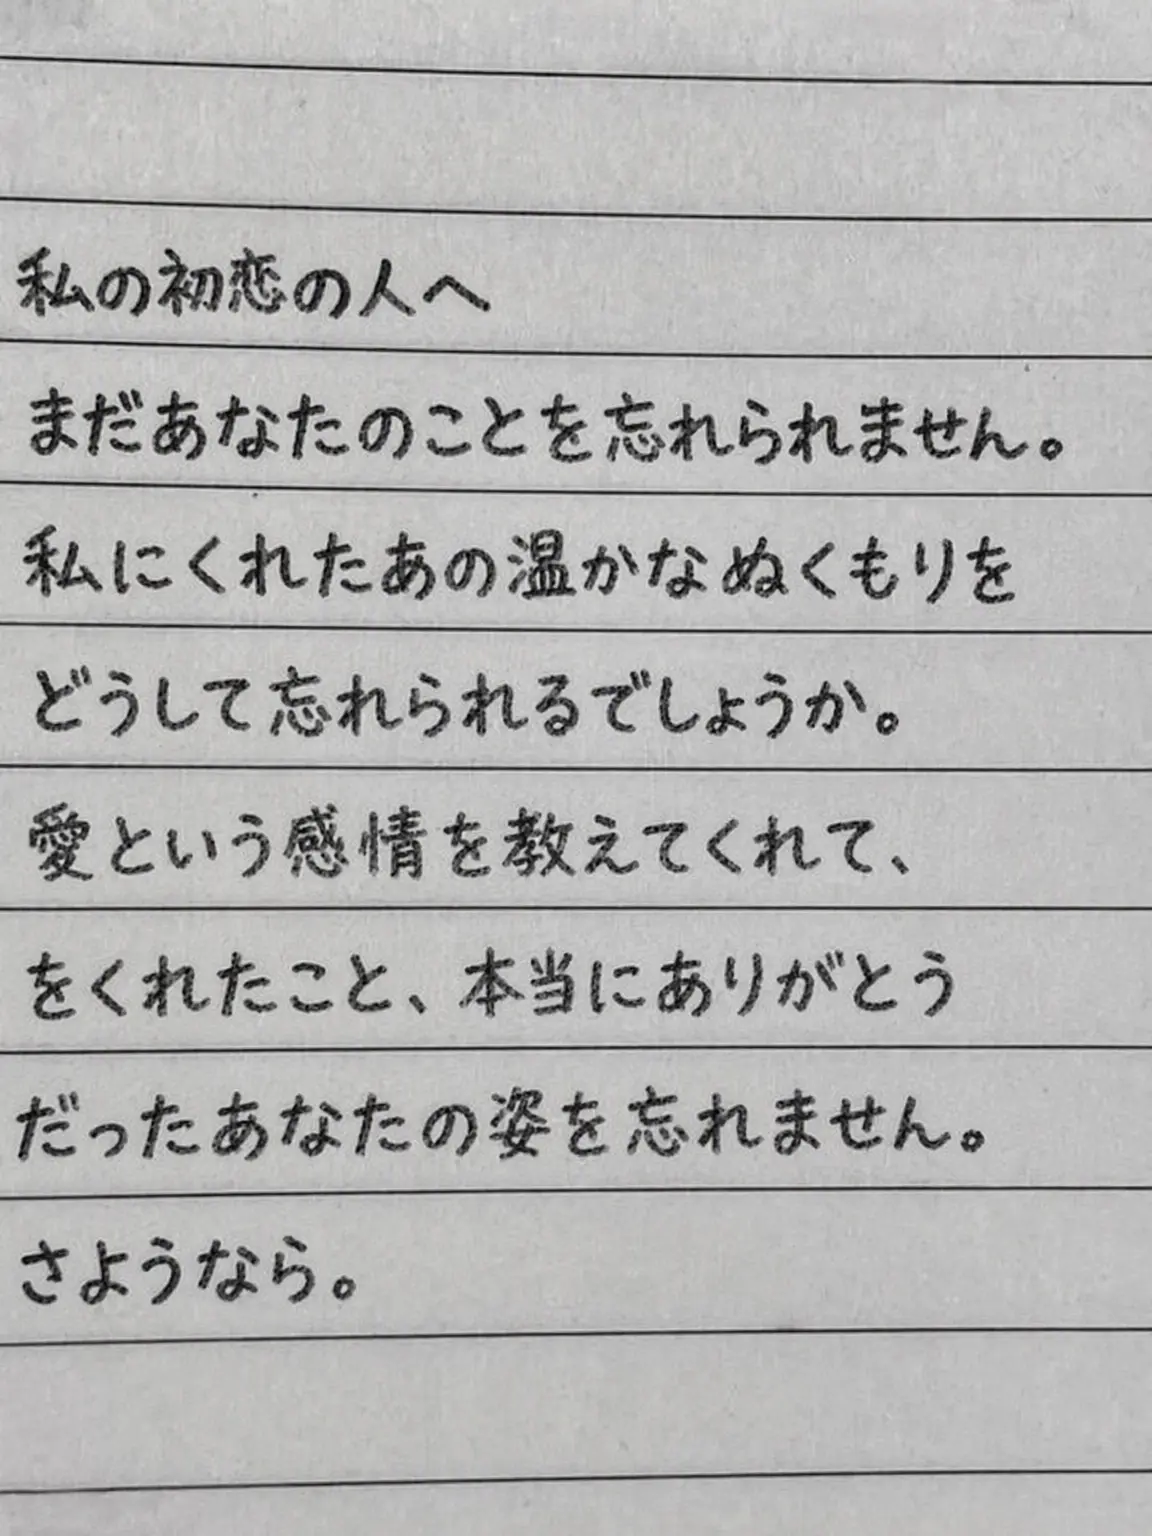 私の初恋の人へ
まだあなたのことを忘れられません。
私にくれたあの温かなぬくもりを
どうして忘れられるでしょうか。
愛という感情を教えてくれて、
をくれたこと、本当にありがとう
だったあなたの姿を忘れません。
さようなら。